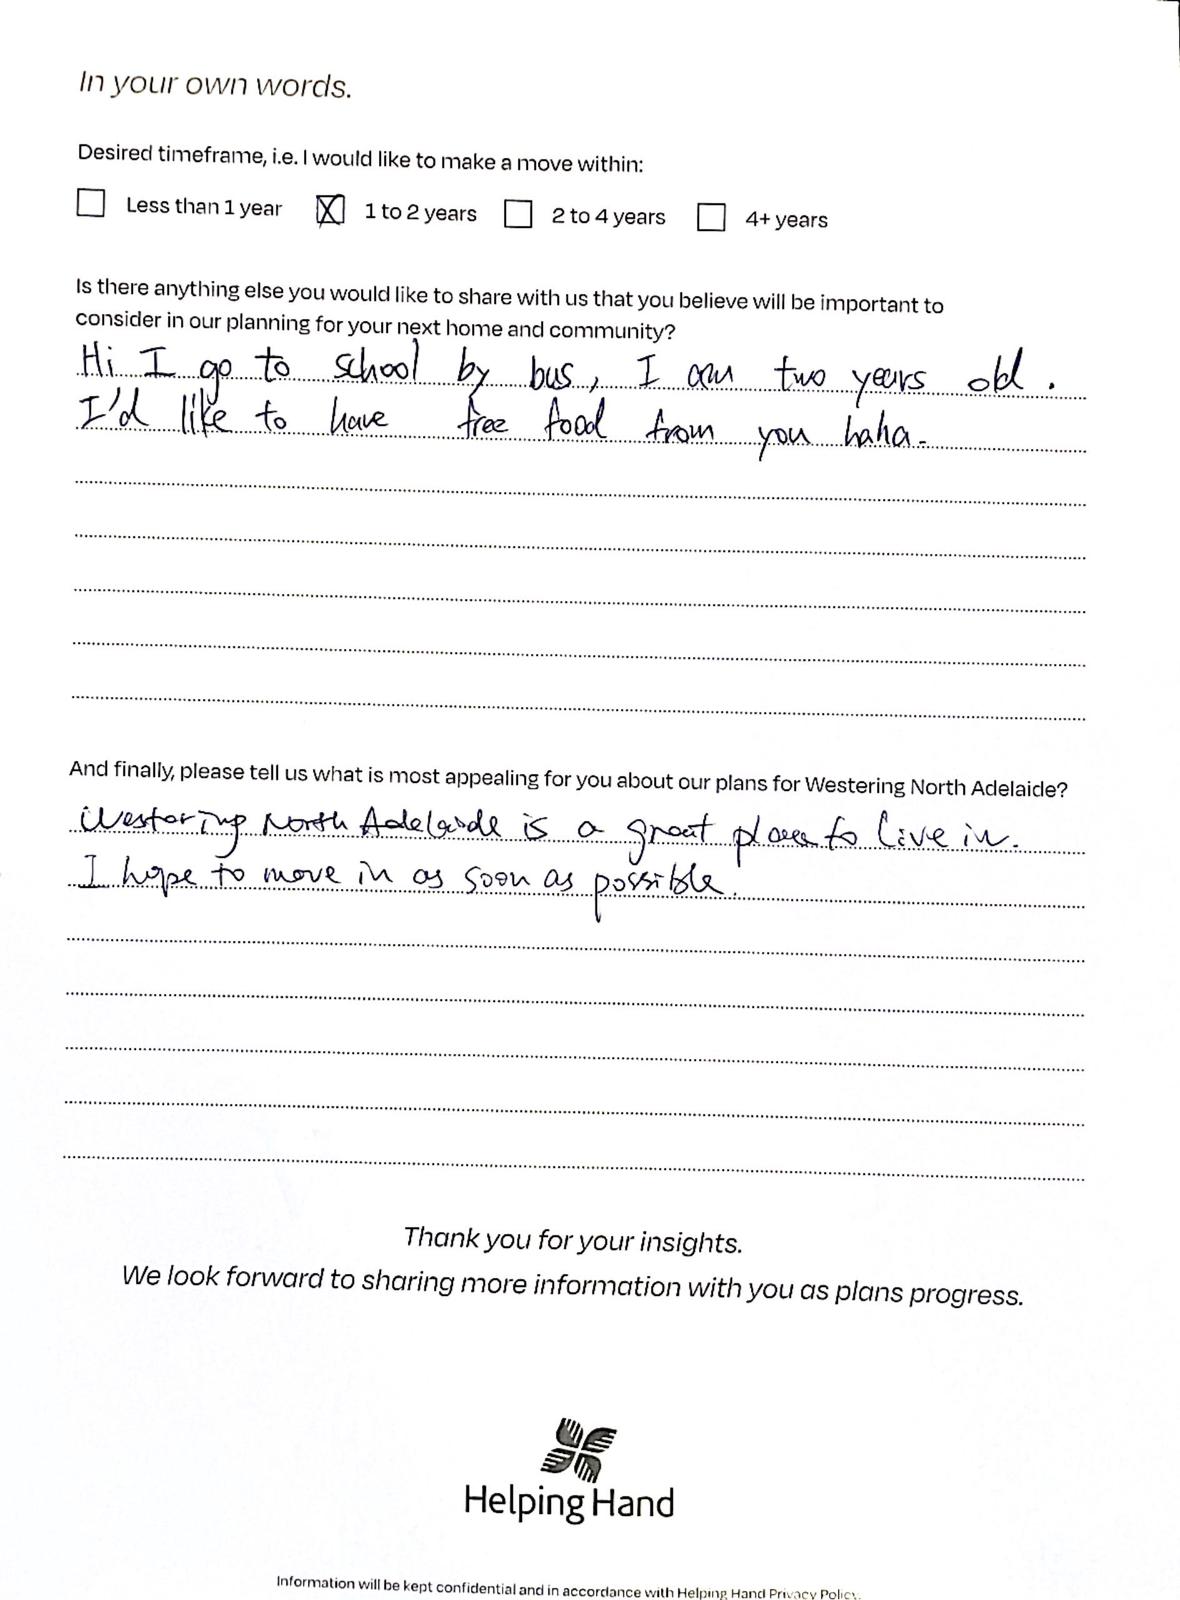 In your own words.
Desired timeframe, i.e. I would like to make a move within:
Less than 1 year 1 to 2 years 2 to 4 years 4+ years
Is there anything else you would like to share with us that you believe will be important to
consider in our planning for your next home and community?
Hi I go to school by bus, I am two years old.
I'd like to have free food from you haha.
And finally, please tell us what is most appealing for you about our plans for Westering North Adelaide?
Westering North Adelaide is a great place to live in.
I hope to move in as soon as possible.
Thank you for your insights.
We look forward to sharing more information with you as plans progress.
Helping Hand
Information will be kept confidential and in accordance with Helping Hand Privacy Policy.